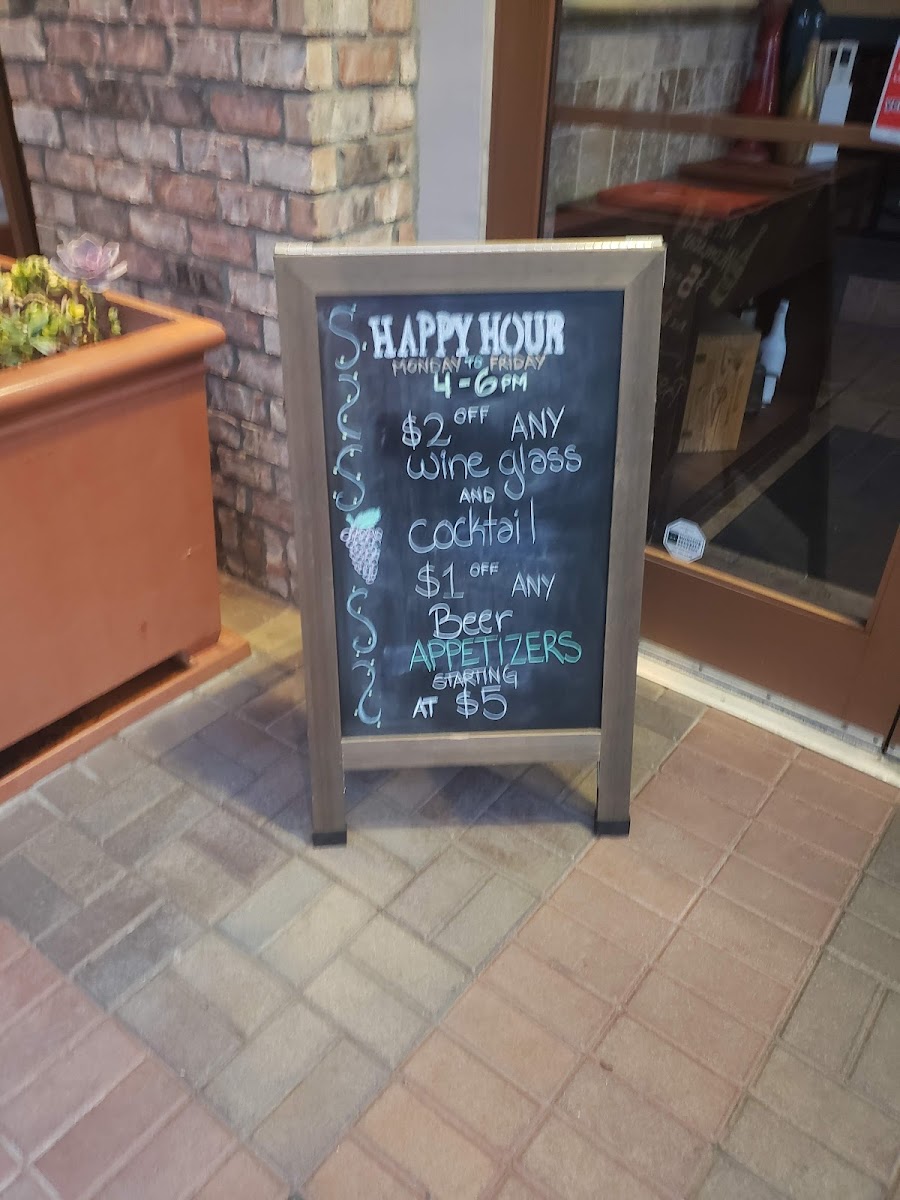 HAPPY HOUR
MONDAY TO FRIDAY
4-6 PM
$2 OFF ANY
wine glass
AND
cocktail
$1 OFF ANY
Beer
APPETIZERS
STARTING
AT $5